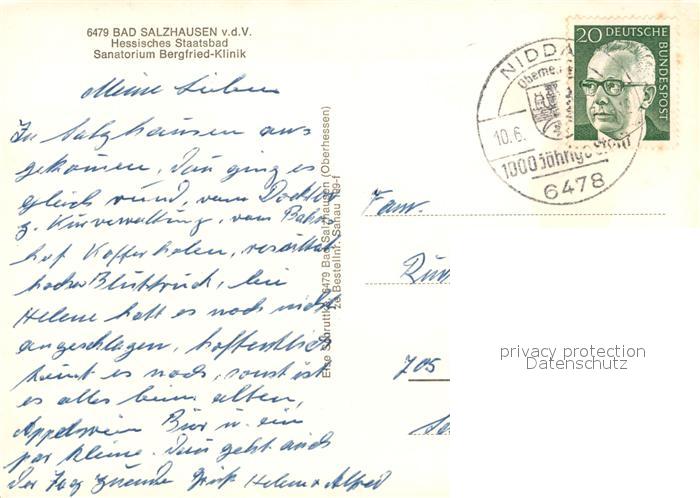 6479 BAD SALZHAUSEN v.d.V.
Hessisches Staatsbad
Sanatorium Bergfried-Klinik
Meine Lieben
In Salzhausen an-
gekommen, dan ging es
gleich rund, vom Doktor
z. Kurverwaltung, vom Bahn
hof Koffer holen,
hoher Blutdruck, bei
Helene hatt es noch nicht
angeschlagen, hoffentlich
kömt es noch, sonst ist
es alles beim alten,
Appelwein Bier u. ein
par kleine. Dan geht auch
der Tag zuende Gruß Helene u Alfred
Else Schruttke, 6479 Bad Salzhausen (Oberhessen)
NIDDA
10.6.
1000 jährige Stadt
6478
20 DEUTSCHE
BUNDESPOST
Fam.
705
privacy protection
Datenschutz